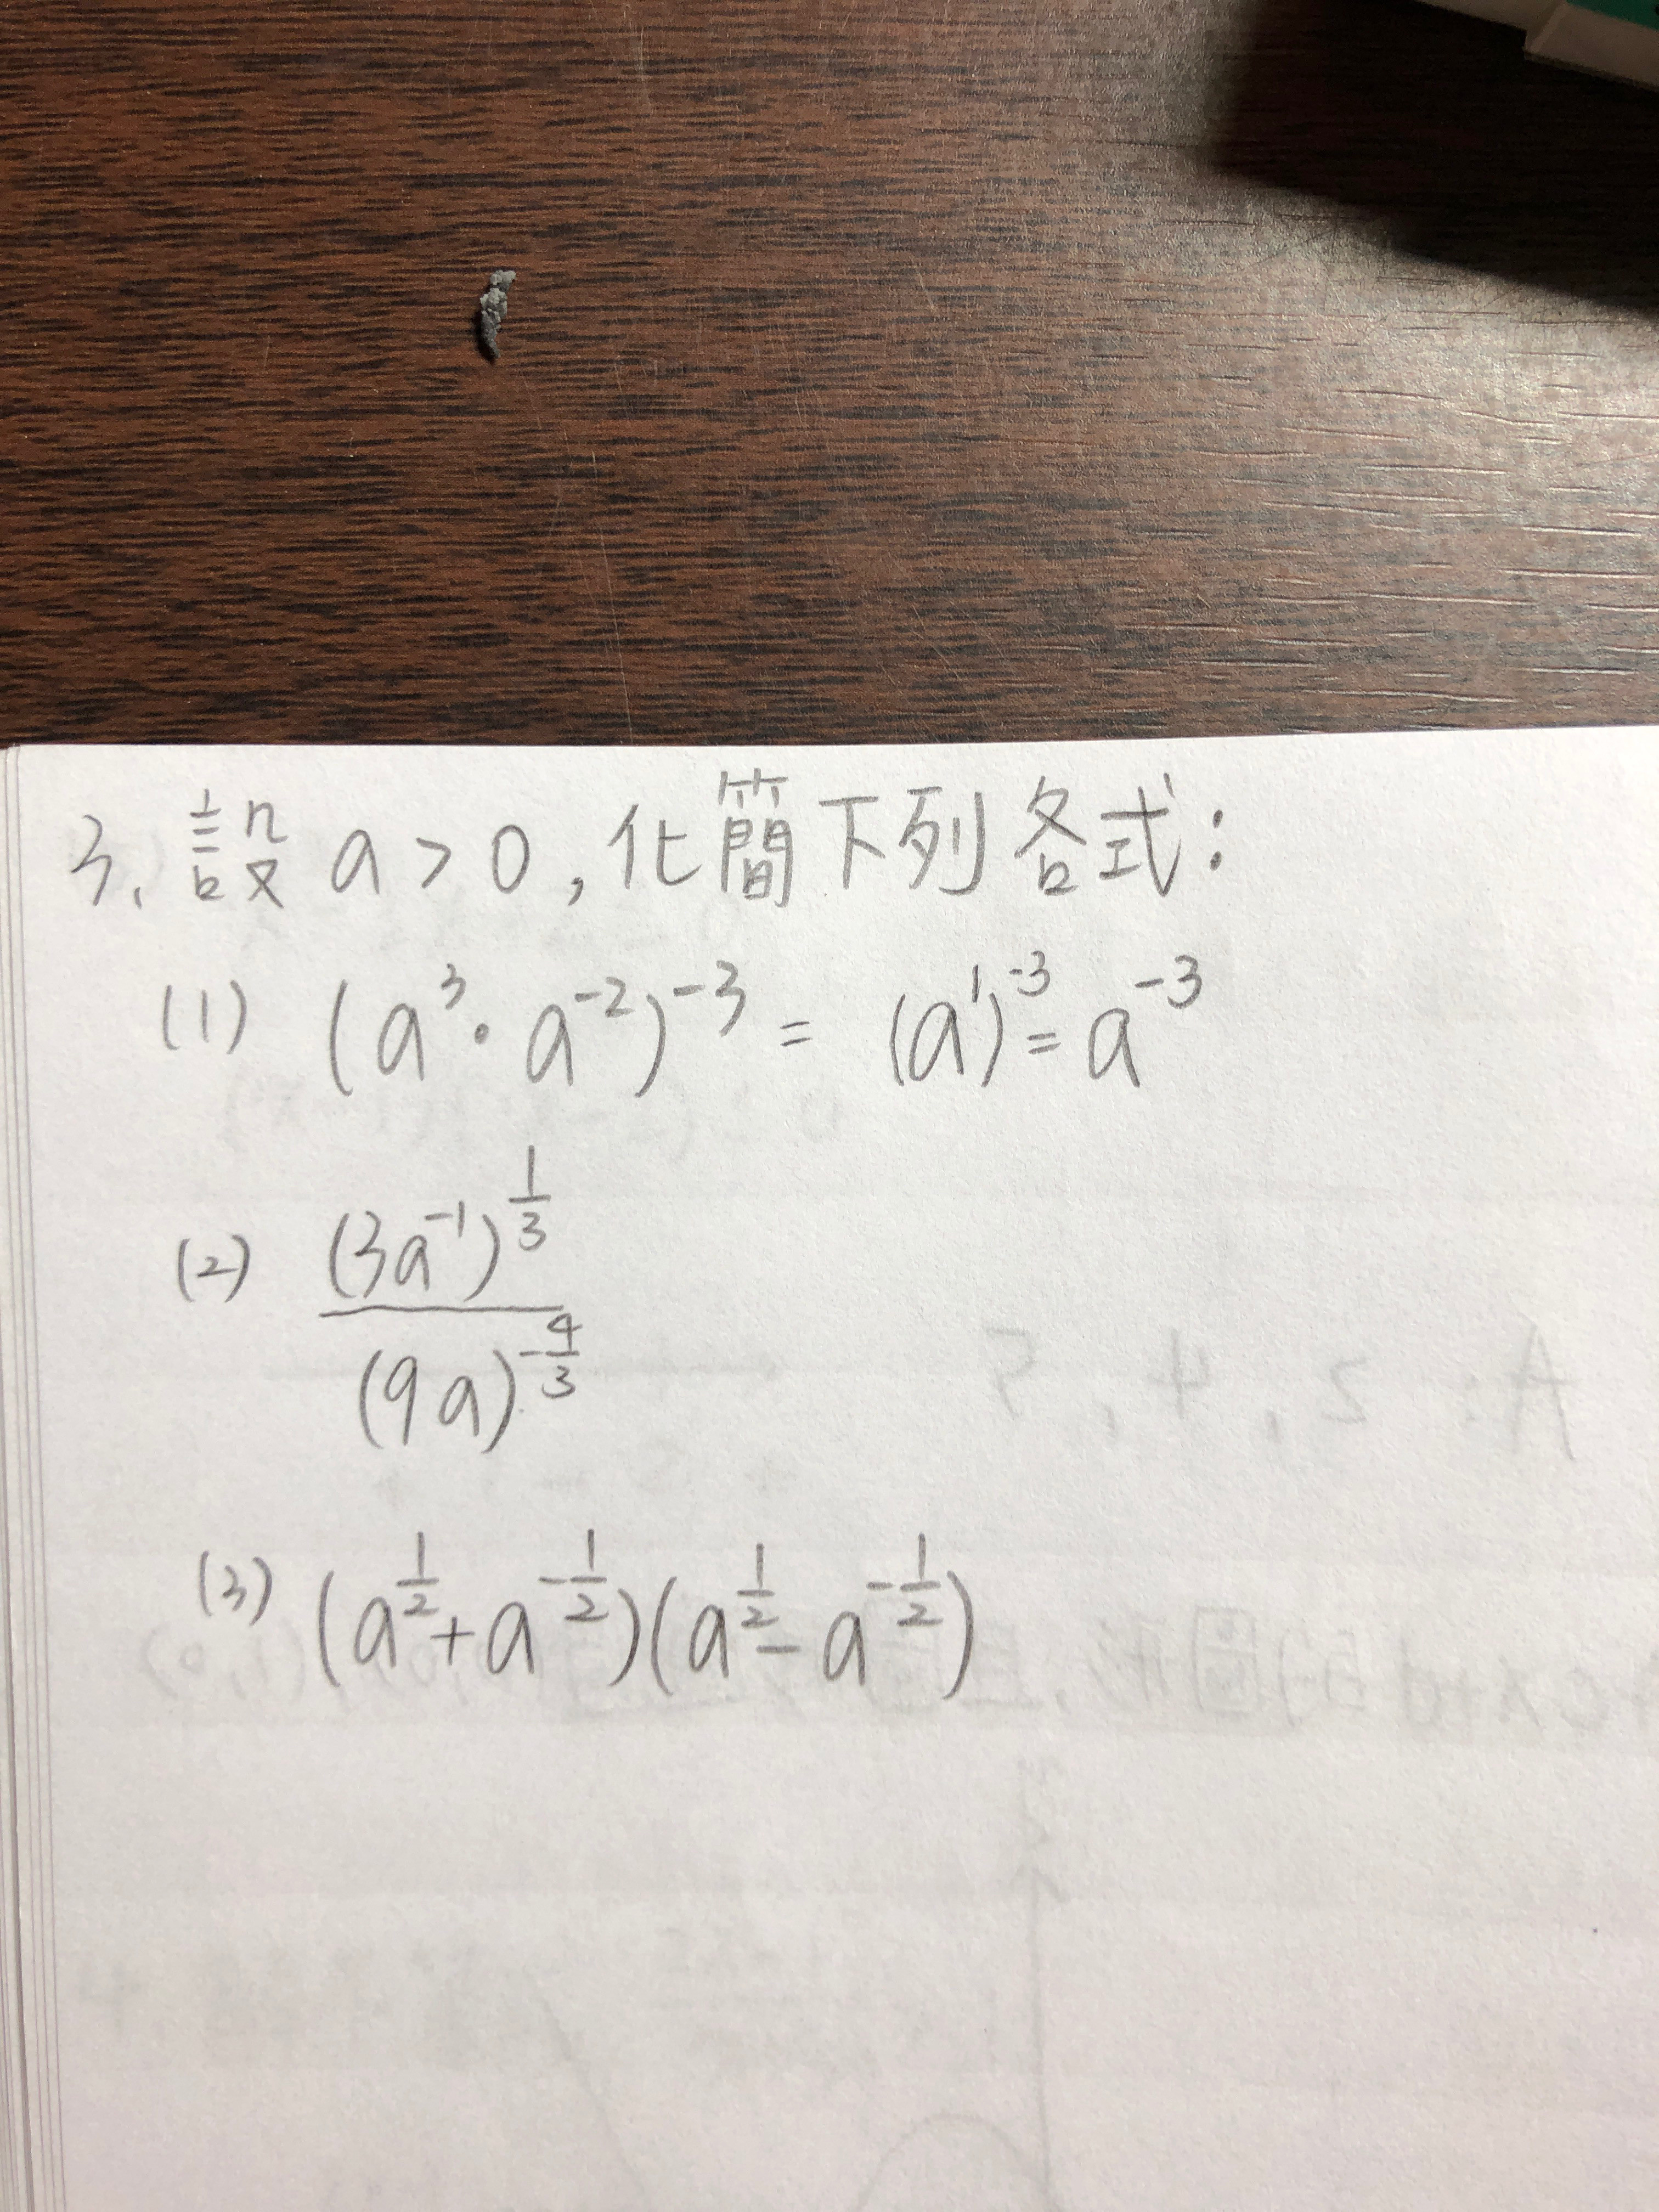 3. 設 a > 0 , 化簡下列各式:
(1) (a³·a⁻²)⁻³ = (a¹)⁻³ = a⁻³
(2) (3a⁻¹)^(1/3) / (9a)^(-4/3)
(3) (a^(1/2) + a^(-1/2))(a^(1/2) - a^(-1/2))